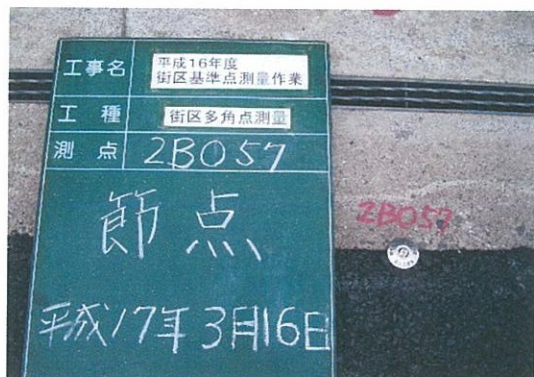 工事名
平成16年度
街区基準点測量作業
工種
街区多角点測量
測点
2B057
節点
平成17年3月16日
2B057